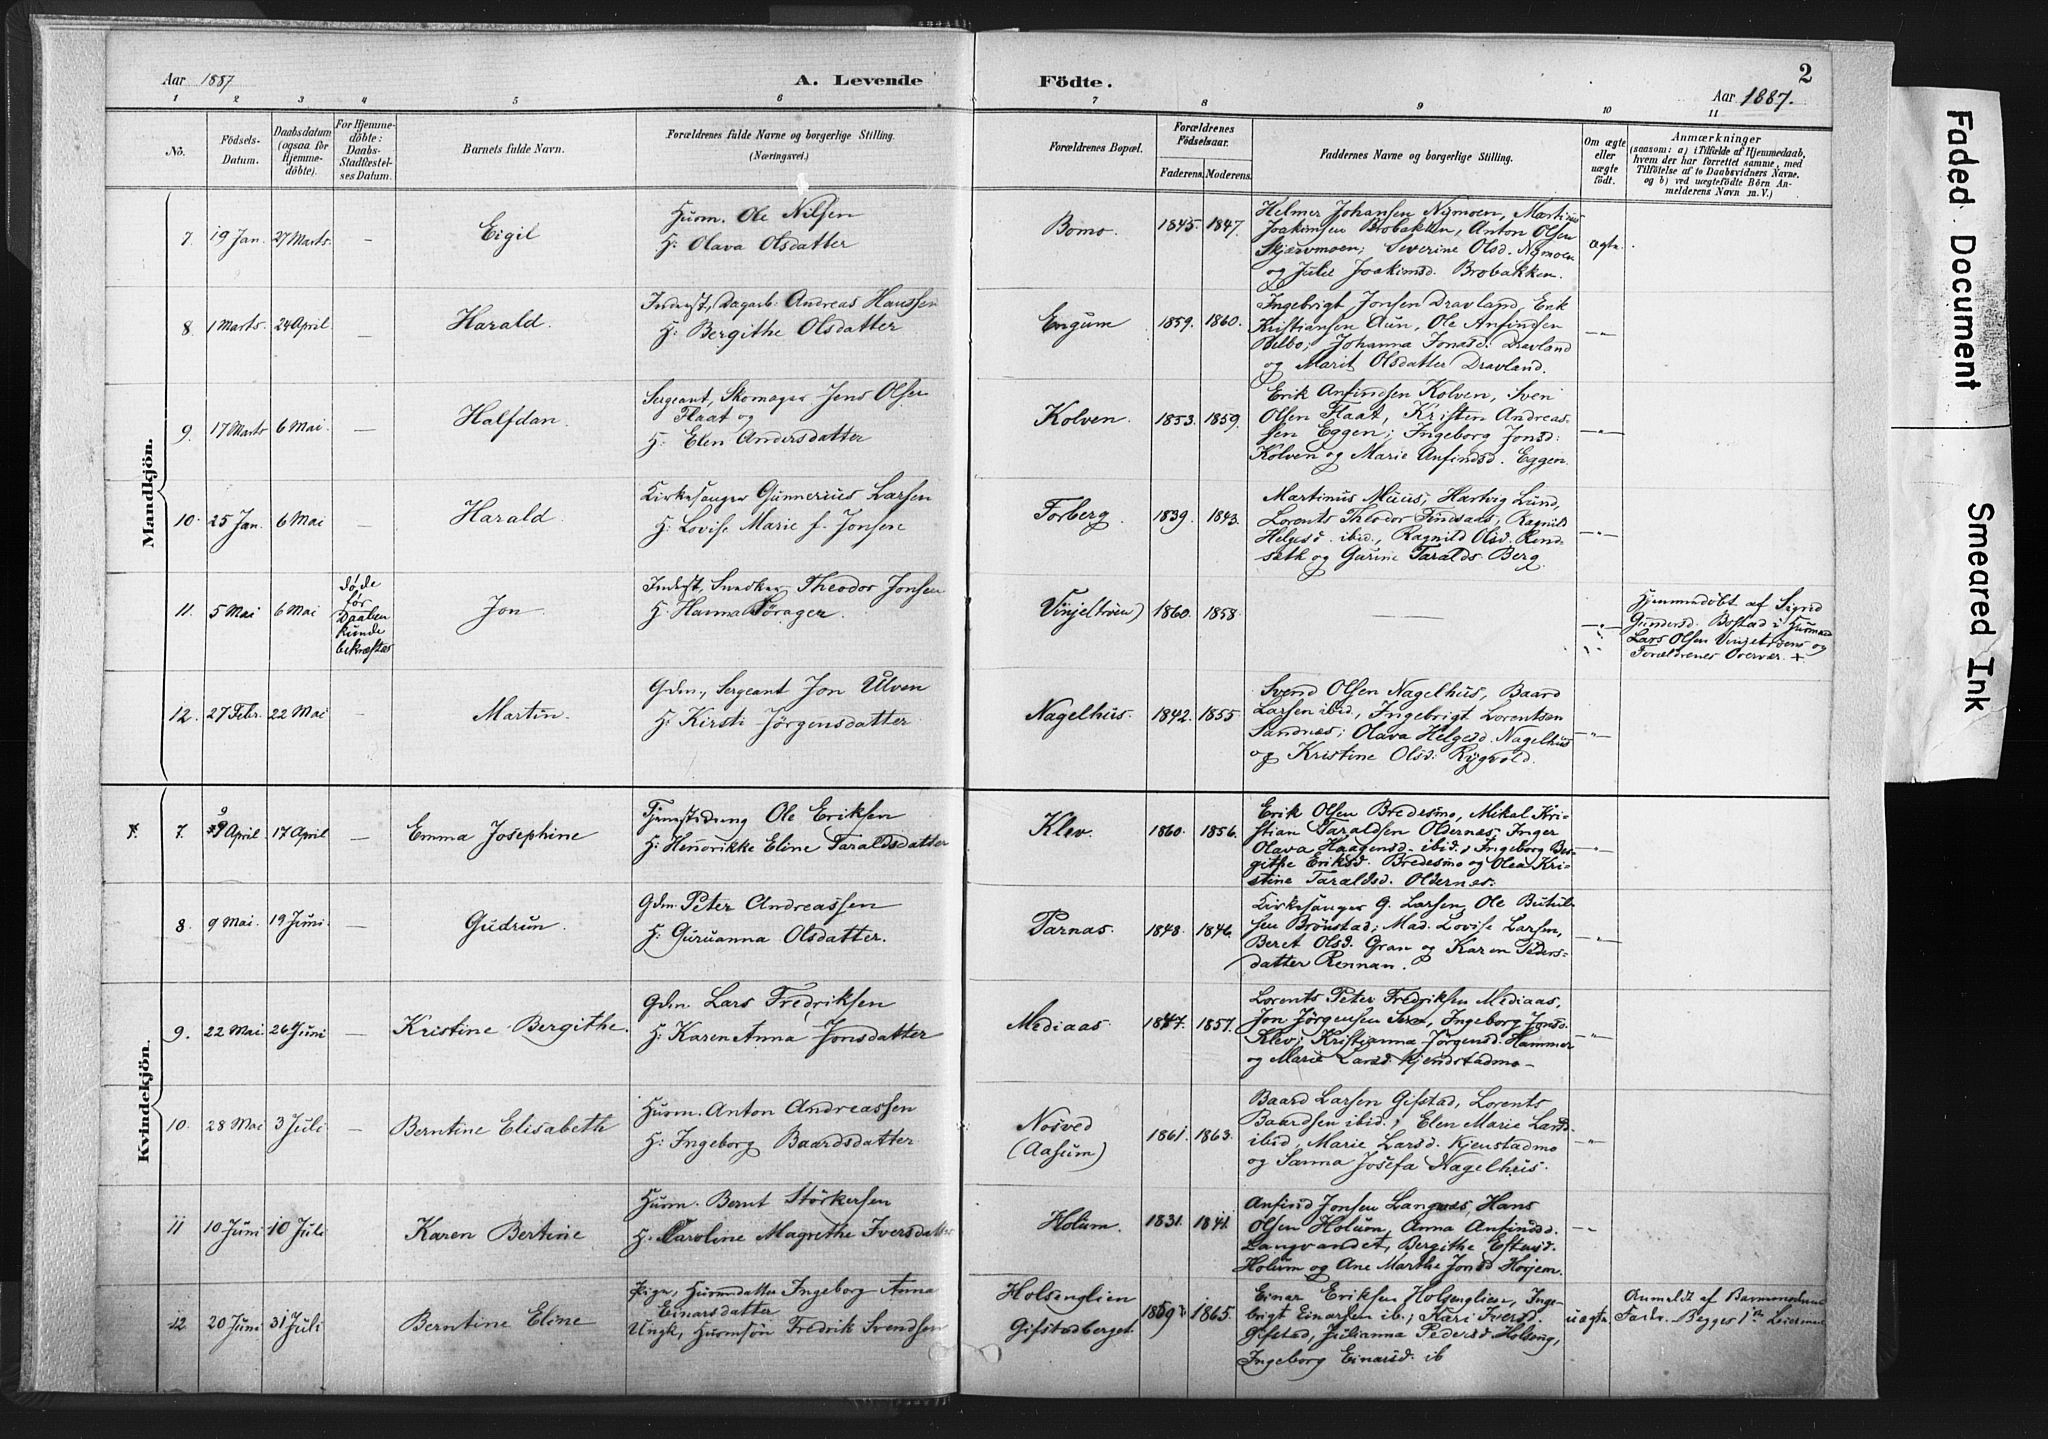 Aar 1887 A. Levende Födte. 2
Aar 1887.
1 2 3 4 5 6 7 8 9 10 11
No.
Födsels-Datum.
Daabsdatum (ogsaa for Hjemme-döbte).
For Hjemme-döbte: Daabs-Stadfæstel-ses Datum.
Barnets fulde Navn.
Forældrenes fulde Navne og borgerlige Stilling.
(Næringsvei.)
Forældrenes Bopæl.
Forældrenes Födselsaar.
Faderens. Moderens.
Faddernes Navne og borgerlige Stilling.
Om ægte eller uægte födt.
Anmærkninger
(saasom: a) i Tilfælde af Hjemmedaab,
hvem der har forrettet samme, med
Tilföielse af to Daabsvidners Navne.
og b) ved uægtefödte Börn An-
melderens Navn m. V.)
Mandkjön.
7. 19 Jan. 27 Marts. — Eigil
Husm. Ole Nilsen
H: Olava Olsdatter
Bomo. 1845. 1847.
Helmer Johansen Nymoen, Martinus
Joakimsen Brobakken, Anton Olsen
Skjærvmoen; Severine Olsd. Nymoen
og Julie Joakimsd. Brobakken.
ægte.
8. 1 Marts. 24 April — Harald.
Inderst, Dagarb. Andreas Hanssen
H: Bergithe Olsdatter
Engum 1859. 1860.
Ingebrigt Jonsen Dravland, Erik
Kristiansen Aun, Ole Anfindsen
Bilbo; Johanna Jonasd. Dravland
og Marit Olsdatter Dravland.
—"—
9. 17 Marts 6 Mai — Halfdan.
Sergeant, Skomager Jens Olsen
Flaat og
H: Elen Andersdatter
Kolven. 1853. 1859.
Erik Anfindsen Kolven, Sven
Olsen Flaat, Kristen Andreas-
sen Eggen; Ingeborg Jonsd:
Kolven og Marie Anfindsd. Eggen.
—"—
10. 25 Jan. 6 Mai — Harald.
Kirkesanger Gunnerius Larsen
H: Lovise Marie f. Jonsen
Forberg. 1839. 1843.
Martinus Muus, Hartvig Lund,
Lorents Theodor Findsaas, Ragnild
Helgesd. ibid., Ragnild Olsd. Rend-
sæth og Gurine Taralds. Berg
—"—
11. 5 Mai 6 Mai
døde
før
Daaben
kunde
bekræftes
Jon
Inderst, Snedker Theodor Jonsen
H: Hanna Törager
Vinje(trøen) 1860. 1858.
—"—
Hjemmedöbt af Sigrid
Gundersd. Bostad i Husmd
Lars Olsen Vinjetrøens og
Forældrenes Overvær. +
12. 27 Febr. 22 Mai — Martin.
Gdm., Sergeant Jon Ulven
H: Kirsti Jörgensdatter
Nagelhus. 1842. 1855.
Svend Olsen Nagelhus, Baard
Larsen ibid, Ingebrigt Lorentsen
Sandnæs; Olava Helgesd. Nagelhus
og Kristine Olsd: Rygvold.
—"—
Kvindekjön.
7. 9 April 17 April — Emma Josephine
Ole Eriksen
H: Henrikke Eline Taraldsdatter
Klev. 1860. 1856.
Erik Olsen Bredesmo, Mikal Kri-
stian Taraldsen Oldernæs, Inger
Olava Haagensd. ibid., Ingeborg Ber-
githe Eriksd. Bredesmo og Olea Kri-
stine Taraldsd. Oldernæs.
—"—
8. 9 Mai. 19 Juni. — Gudrun.
Gdm. Peter Andreassen
H: Guruanna Olsdatter.
Parnas. 1848. 1846.
Kirkesanger G. Larsen, Ole Butul-
sen Brönstad; Mad. Lovise Larsen,
Beret Olsd. Gran og Karen Peders-
datter Rennan.
—"—
9. 22 Mai 26 Juni — Kristine Bergithe.
Gdm. Lars Fredriksen
H: Karen Anna Jonsdatter
Mediaas. 1847. 1857.
Lorents Peter Fredriksen Mediaas,
Jon Jörgensen Sræ, Ingeborg Jonsd.
Klev; Kristianna Jörgensd. Hammer
og Marie Larsd. Kjendstadmo —
—"—
10. 28 Mai 3 Juli — Berntine Elisabeth
Husm. Anton Andreassen
H: Ingeborg Baardsdatter
Nosved
(Aasum)
1861. 1863.
Baard Larsen Gifstad, Lorents
Baardsen ibid., Elen Marie Larsd.
ibid, Marie Larsd. Kjenstadmo
og Sanna Josefa Nagelhus.
—"—
11 10 Juni 10 Juli Karen Bertine
Husm. Bernt Störkersen
H. Caroline Magrethe Iversdatter
Holum. 1831. 1841.
Anfind Jonsen Langnæs, Hans
Olsen Holum, Anna Anfindsd.
Langvandet, Bergithe Estensd.
Holum og Ane Marthe Jonsd Hojem.
—"—
12 20 Juni 31 Juli Berntine Eline
Pige, Husmdatter Ingeborg Anna
Einarsdatter
Ungk, Husmsön Fredrik Svendsen
Holsenglien
Gifstadberget.
1859 1865.
Einar Eriksen Holsenglien, Inge-
brigt Einarsen ib.; Kari Iversd.
Gifstad, Julianna Pedersd Holseng,
Ingeborg Einarsd. ib
uægte.
Anmeldt af Barnemoderens
Fader. Begges 1ste Leiermaal
Faded Document
Smeared Ink